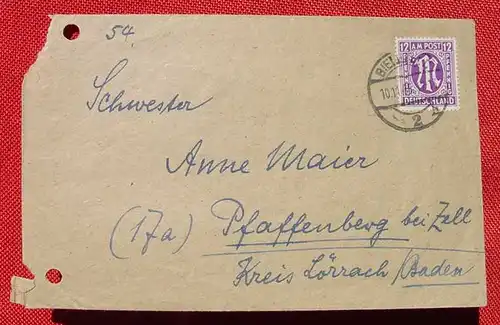 54
12 AM POST 12
DEUTSCHLAND
10.1
2
Schwester
Anne Maier
(17a) Pfaffenberg bei Zell
Kreis Lörrach/Baden